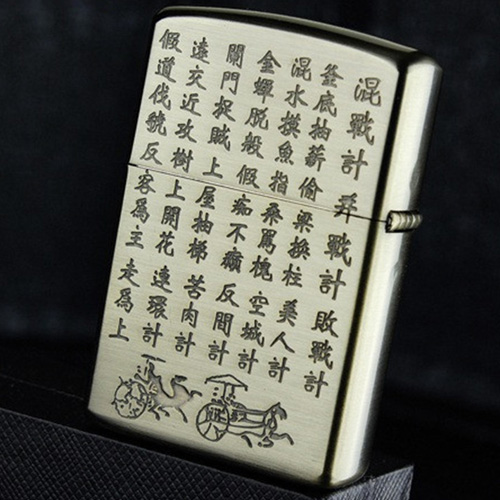 混戰計 并戰計 敗戰計
釜底抽薪 偷梁換柱 美人計
混水摸魚 指桑罵槐 空城計
金蟬脫殼 假痴不癲 反間計
關門捉賊 上屋抽梯 苦肉計
遠交近攻 樹上開花 連環計
假道伐虢 反客為主 走為上